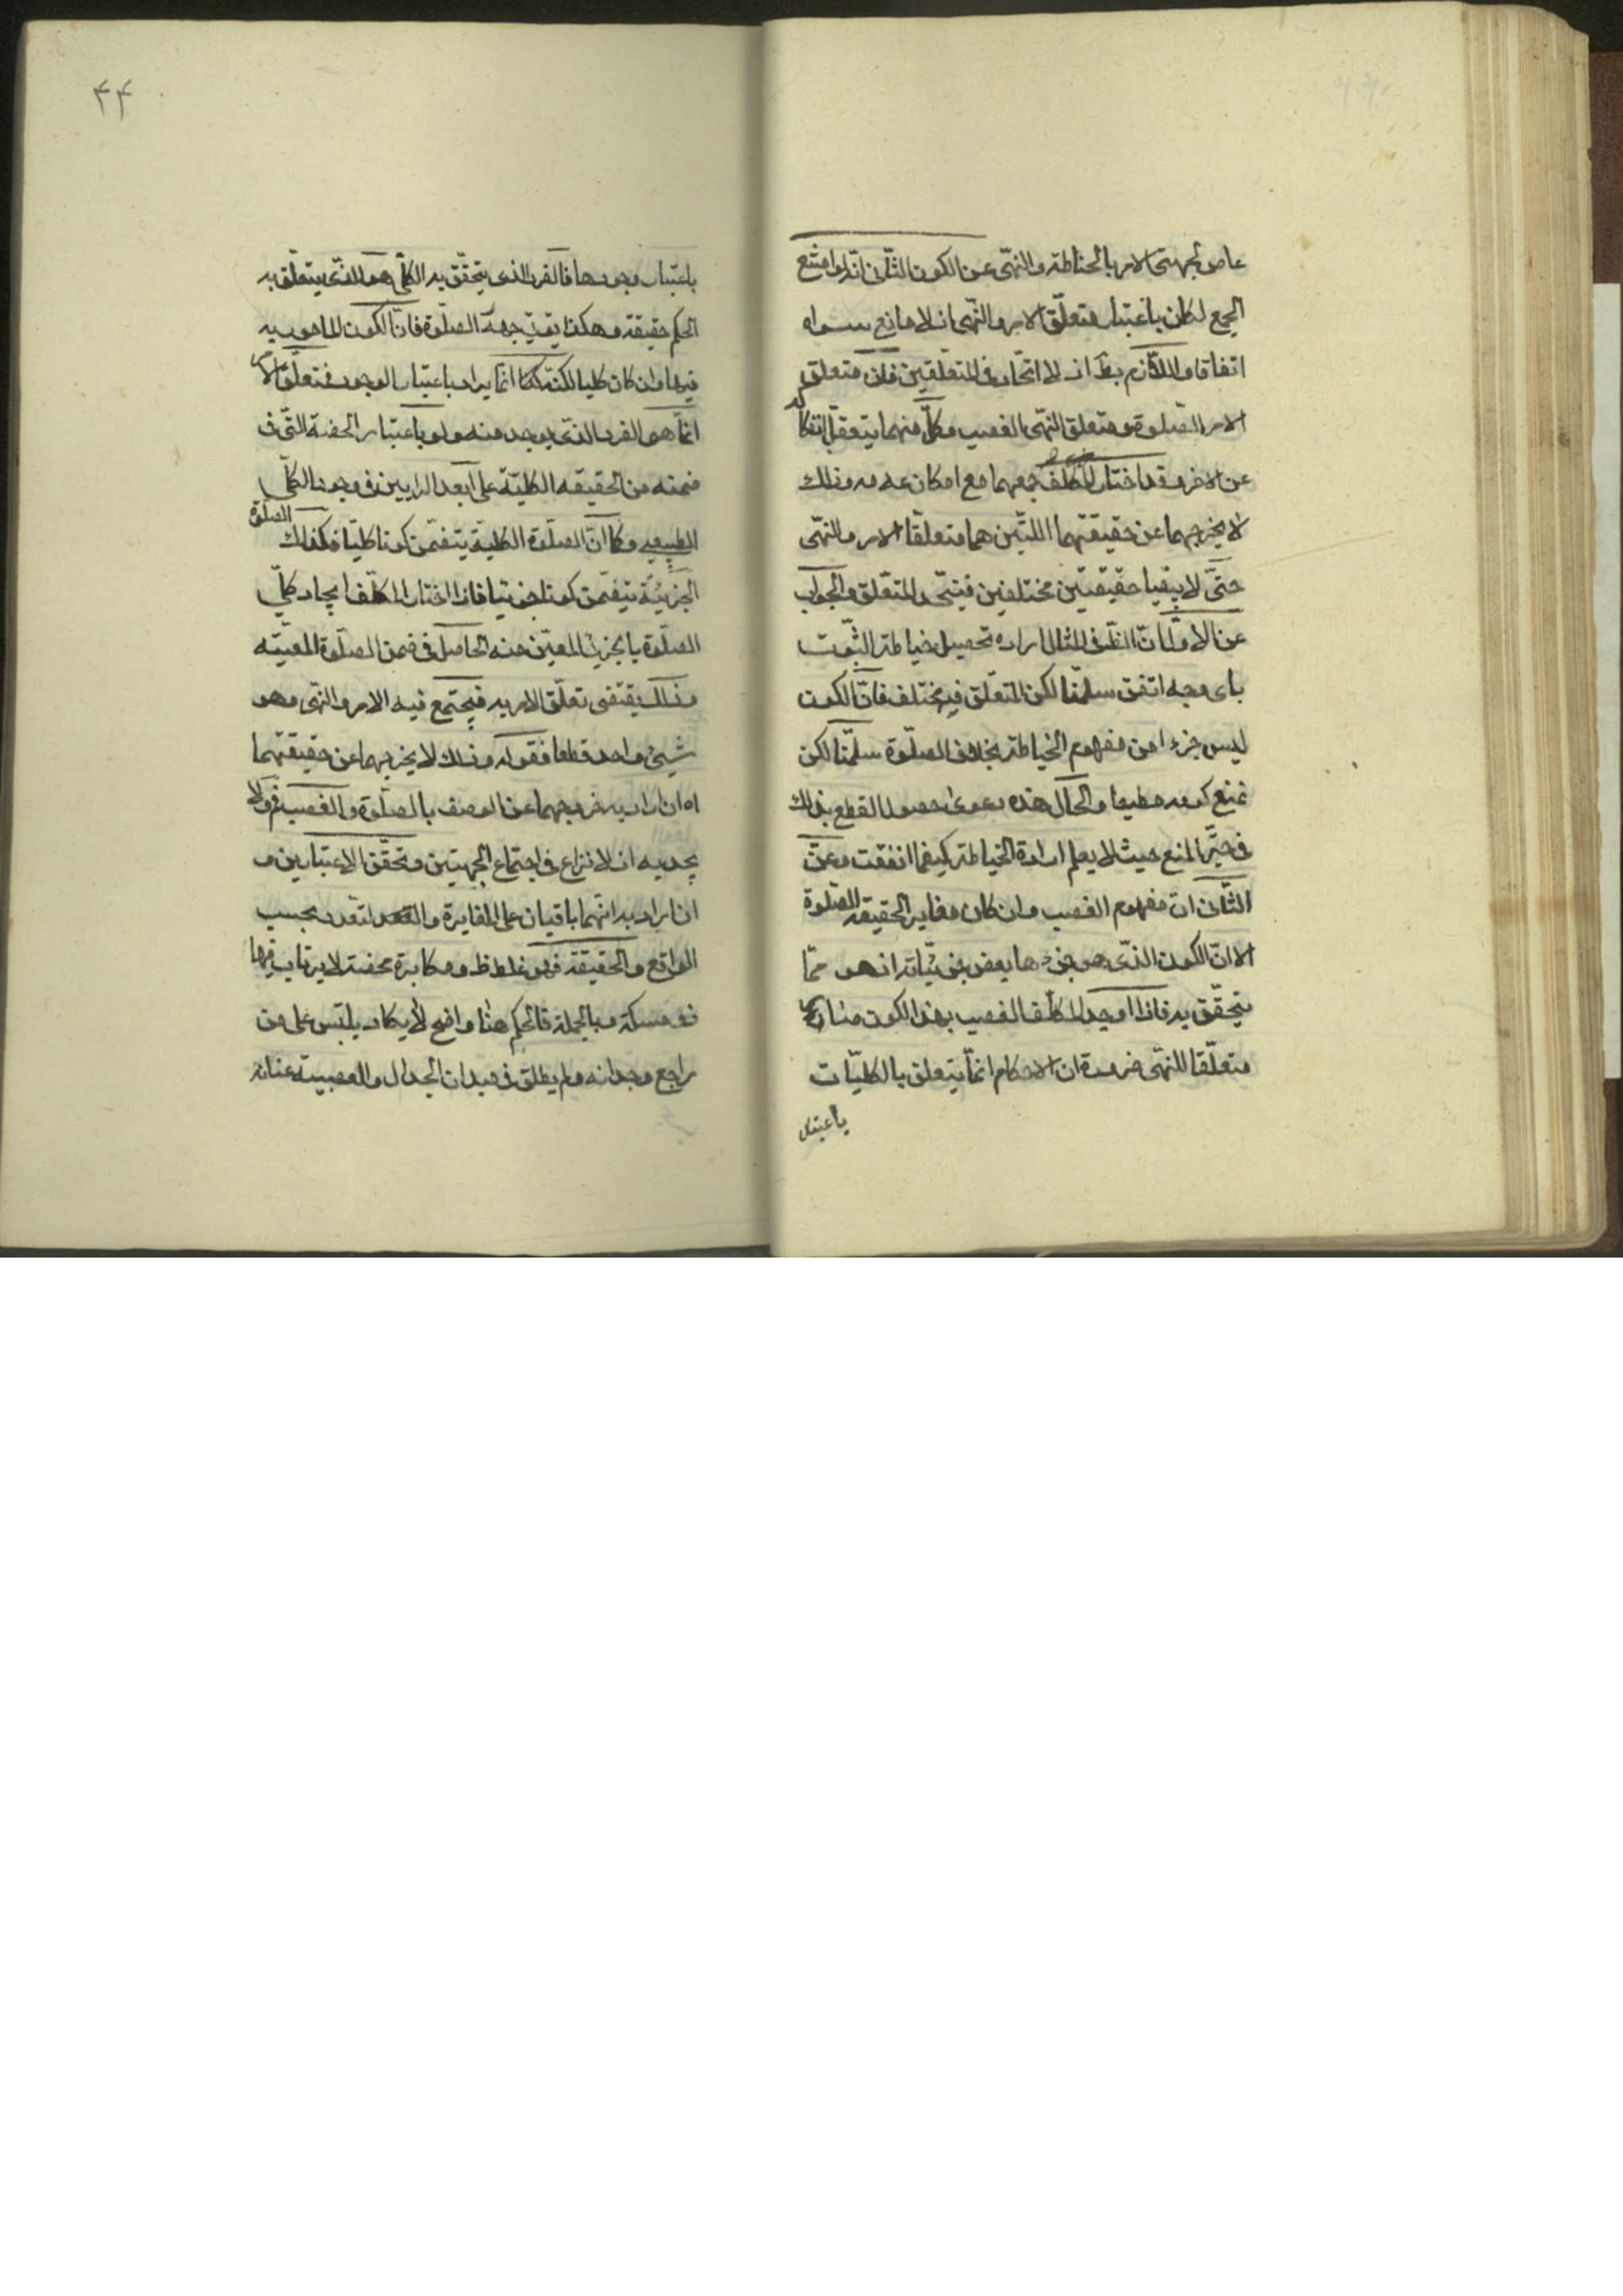 عاص بجهتى الامر بالخياطة والنهى عن الكون الثانى انه لو امتنع
الجمع لكان باعتبار متعلق الامر والنهى اذ لا مانع سواه
اتفاقا واللازم بط اذ لا اتحاد فى المتعلقين فان متعلق
الامر الصلوة ومتعلق النهى الغصب وكل منهما يتعقل انفكاكه
عن الاخر وقد اختار المكلف جمعهما مع امكان عدمه وذلك
لا يخرجهما عن حقيقتهما اللتين هما متعلقا الامر والنهى
حتى لا يبقيا حقيقتين مختلفين فيتحد المتعلق والجواب
عن الاول ان الظ فى المثال اراده تحصيل خياطة الثوب
باى وجه اتفق سلمنا لكن المتعلق فيه مختلف فان الكون
ليس جزءا من مفهوم الخياطة بخلاف الصلوة سلمنا لكن
نمنع كونه مطيعا والحال هذه دعوى حصول القطع بذلك
فى حيز المنع حيث لا يعلم ارادة الخياطة كيفما اتفقت وعن
الثانى ان مفهوم الغصب وان كان مغاير الحقيقه الصلوة
الا ان الكون الذى هو جزءها بعض جزئياته اذ هو مما
يتحقق به فاذا اوجد المكلف الغصب بهذا الكون صار
متعلقا للنهى ضرورة ان الاحكام انما يتعلق بالكليات
باعتبار
۴۴
باعتبار وجودها فالفرد الذى يتحقق به الكلى هو الذى يتعلق به
الحكم حقيقة وهكذا يق فى جهة الصلوة فان الكون المامور به
فيها وان كان كليا لكنه انما يراد باعتبار الوجود فمتعلق الامر
انما هو الفرد الذى يوجد منه ولو باعتبار الحصة التى فى
ضمنه من الحقيقه الكلية على ابعد الرايين فى وجود الكلى
الطبيعى وكما ان الصلوة الكلية يتضمن كونا كليا فكذلك الصلوة
الجزئية يتضمن كونا جزئيا فاذا اختار المكلف ايجاد كلى
الصلوة بالجزئى المعين منه الحاصل فى ضمن الصلوة المعينه
وذلك يقتضى تعلق الامر به فيجتمع فيه الامر والنهى وهو
شيئ واحد قطعا فقوله وذلك لا يخرجهما عن حقيقتهما
اه ان اراد به خروجهما عن الوصف بالصلوة والغصب فم ولا
يجديه اذ لا نزاع فى اجتماع الجهتين وتحقق الاعتبارين و
ان اراد به انهما باقيان على المغايرة والتعدد بحسب
الواقع والحقيقة فهو غلط ظ ومكابرة محضة لا يرتاب فيها
ذو مسكة وبالجملة فالحكم هنا واضح لا يكاد يلتبس على من
راجع وجدانه ولم يطلق فى ميدان الجدال والعصبية عنانه